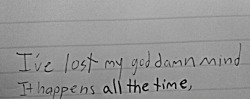 I've lost my goddamn mind
It happens all the time,